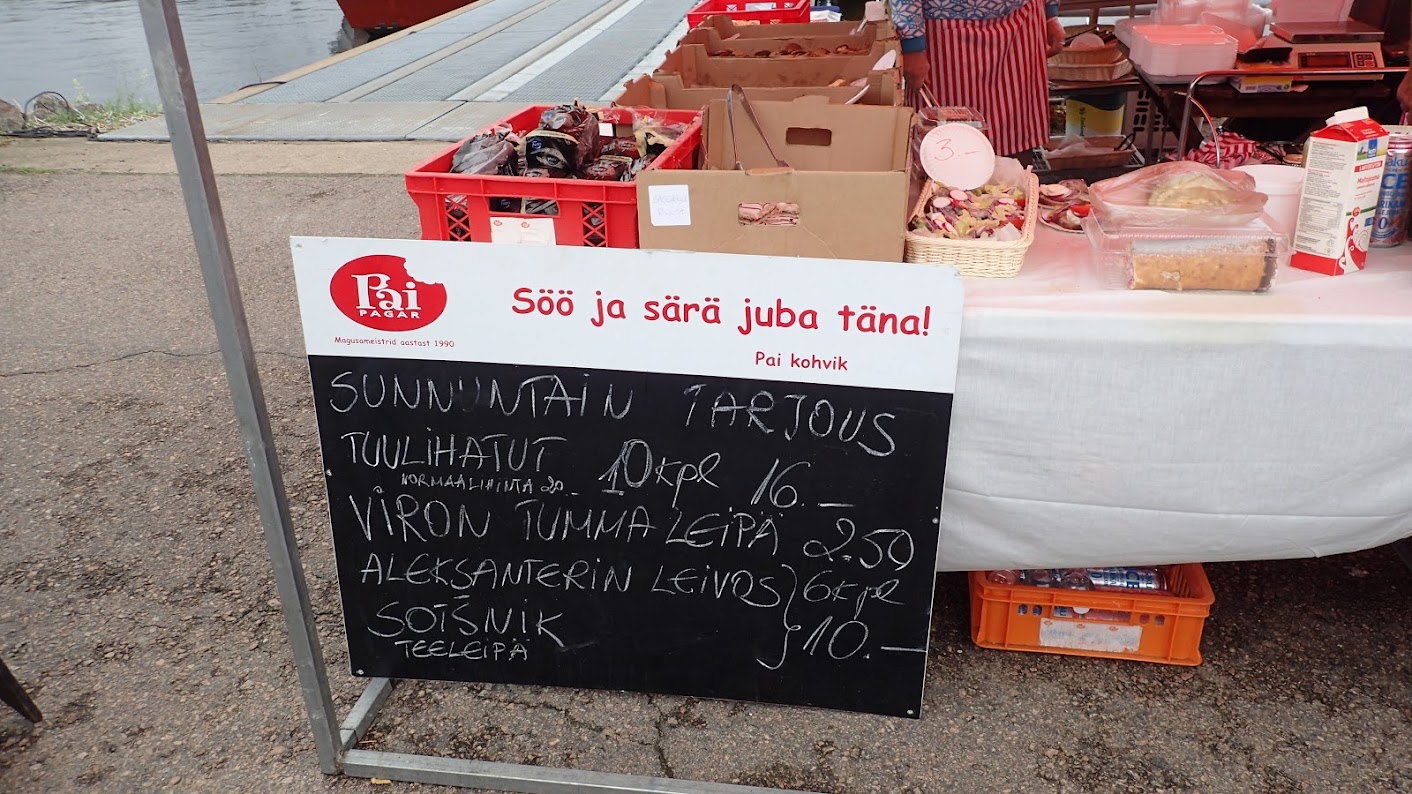 3.—
Pai
PAGAR
Magusameistrid aastast 1990
Söö ja särä juba täna!
Pai kohvik
SUNNUNTAIN TARJOUS
TUULIHATUT 10 kpl 16.—
NORMAALIHINTA 20.—
VIRON TUMMA LEIPÄ 2.50
ALEKSANTERIN LEIVOS } 6 kpl
SOTŠNIK } 10.—
TEELEIPÄ